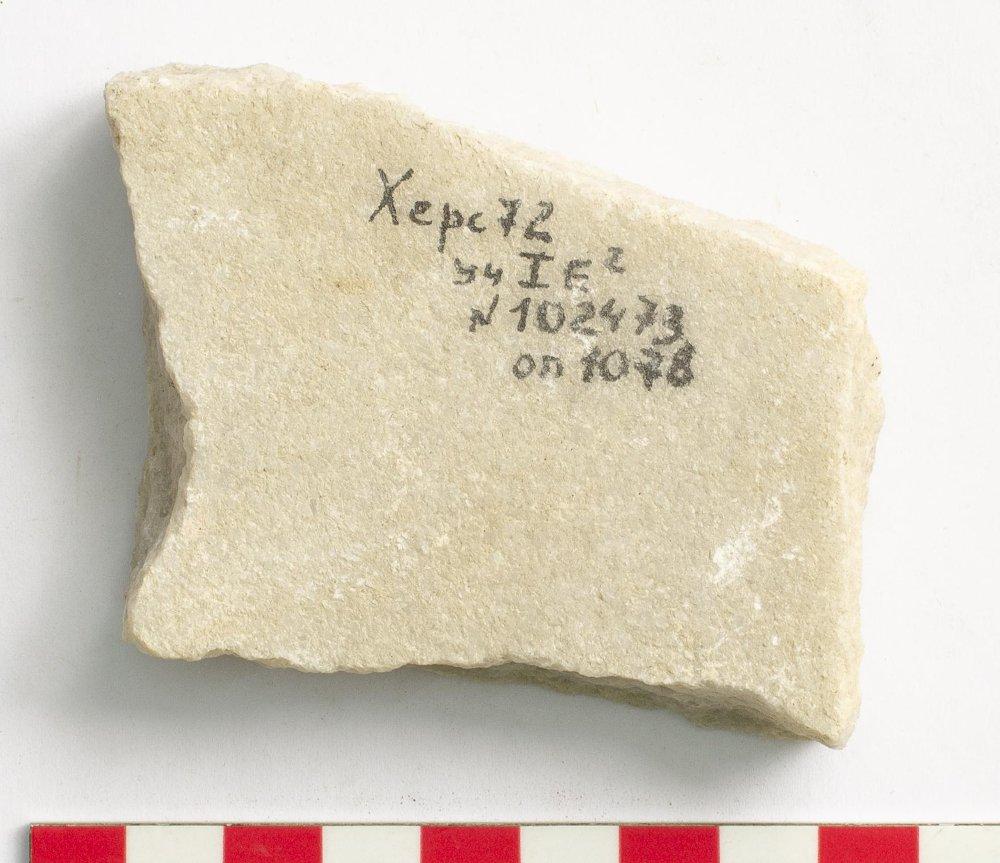 Херс 72
уч I E²
N 102473
оп 1078